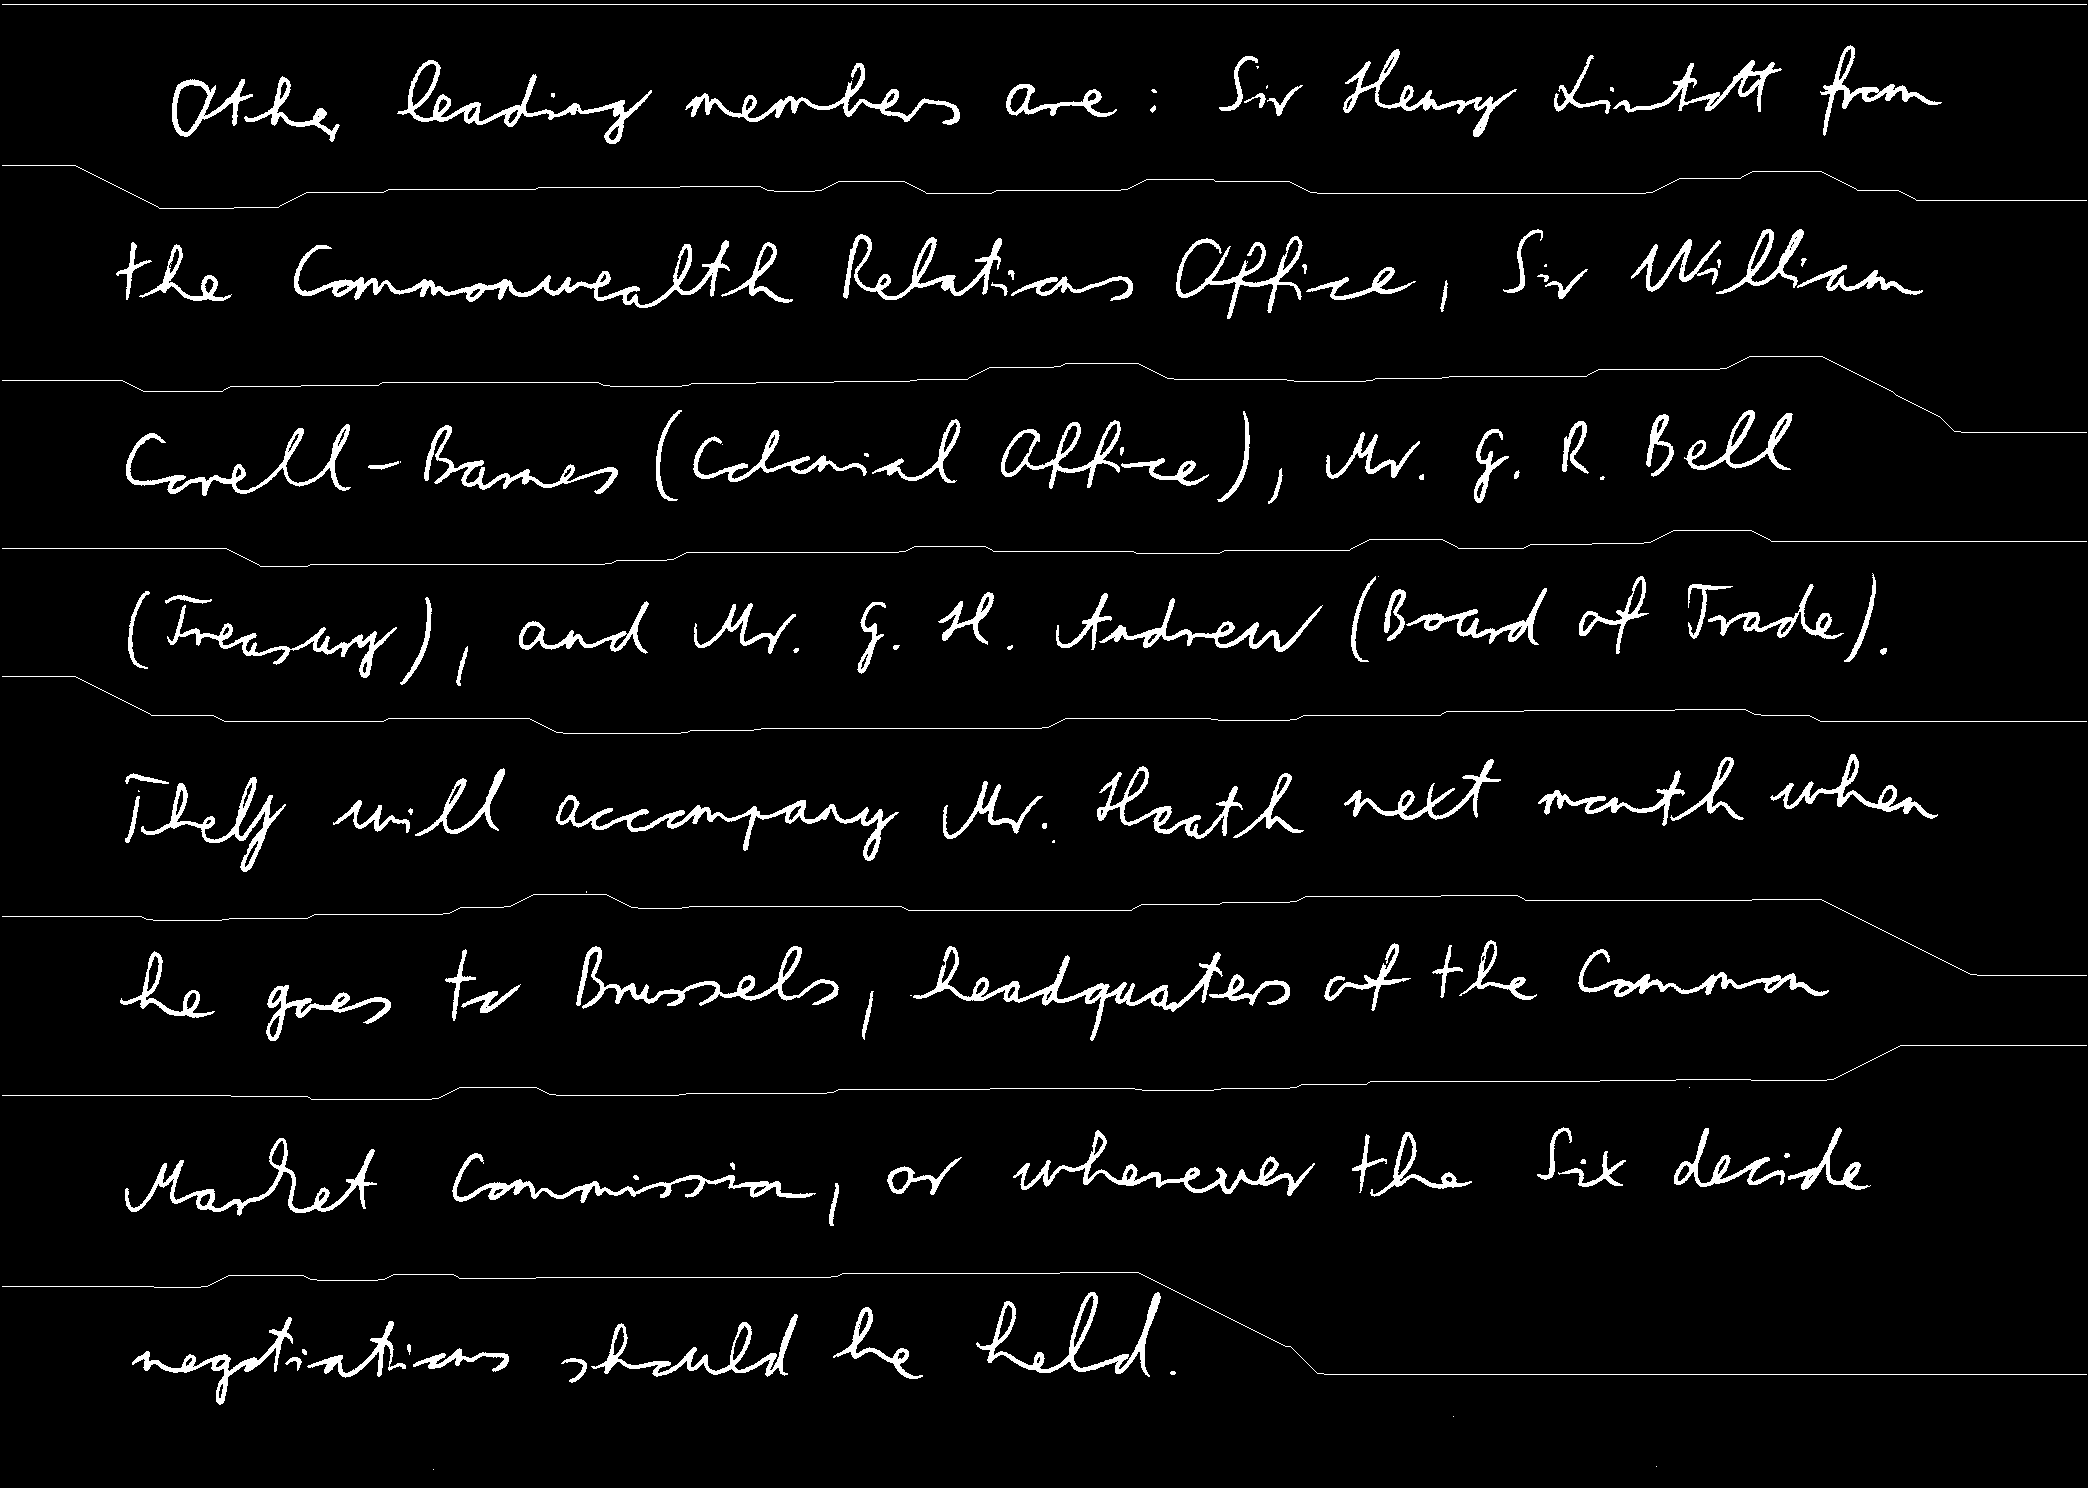 Other leading members are : Sir Henry Lintott from
the Commonwealth Relations Office, Sir William
Corell-Barnes (Colonial Office), Mr. G. R. Bell
(Treasury), and Mr. G. H. Andrew (Board of Trade).
They will accompany Mr. Heath next month when
he goes to Brussels, headquarters of the Common
Market Commission, or wherever the Six decide
negotiations should be held.